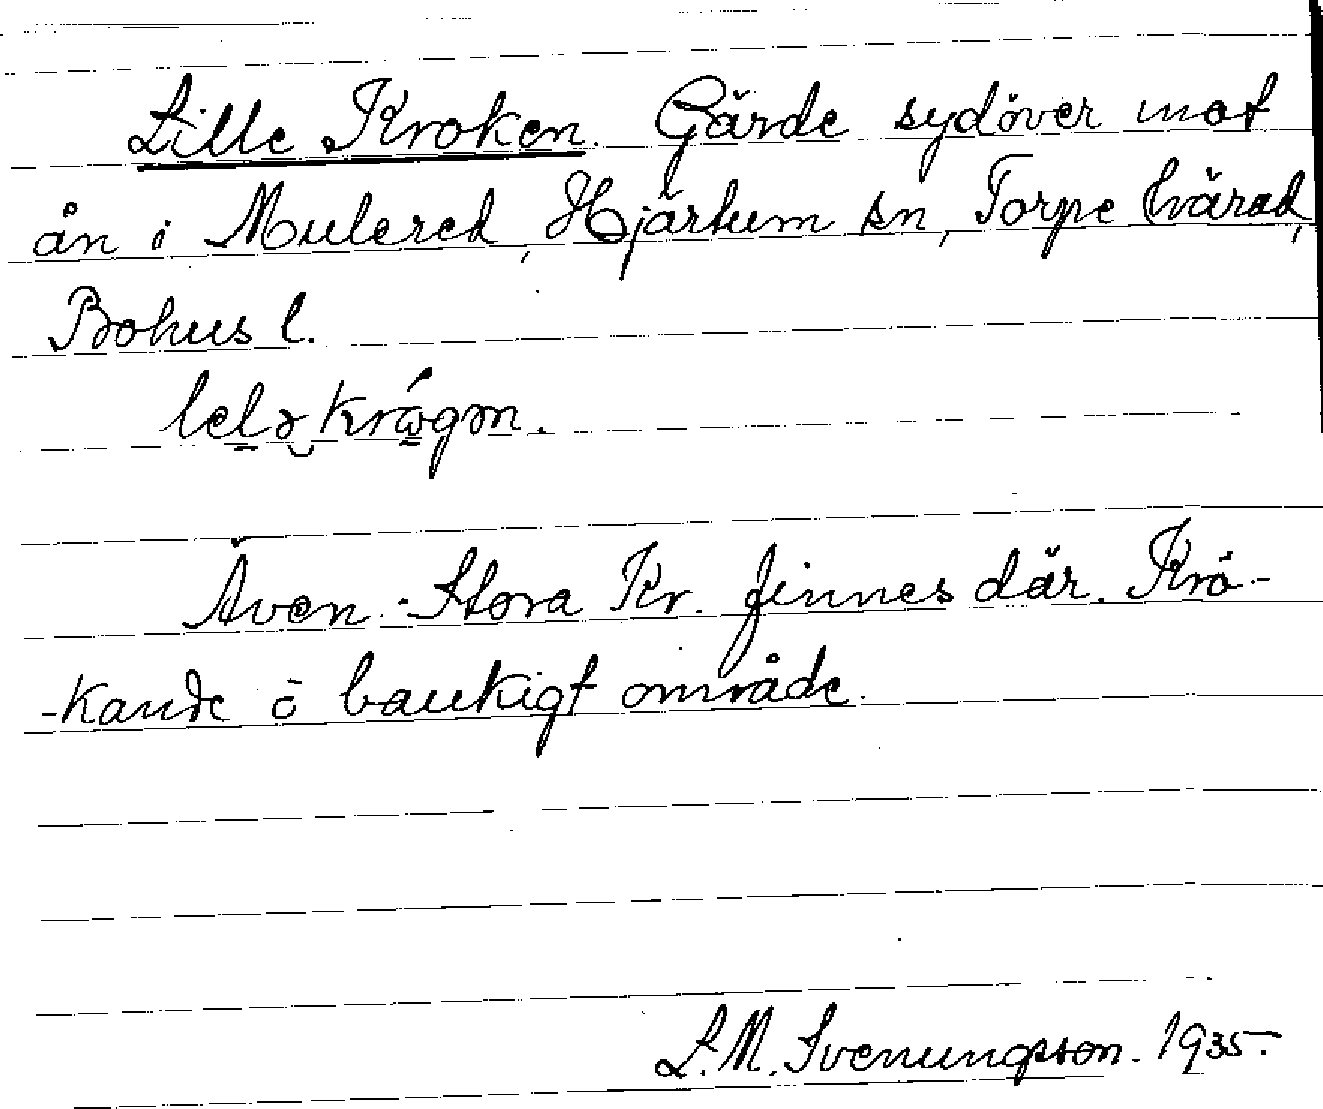 Lille Kroken. Gärde sydöver mot
ån i Mulered, Hjärtum sn, Torpe härad,
Bohus l.
lelə krǻgən.
Även Stora Kr. finnes där. Krö-
-kande o baukigt område.
L. M. Svenungsson. 1935.